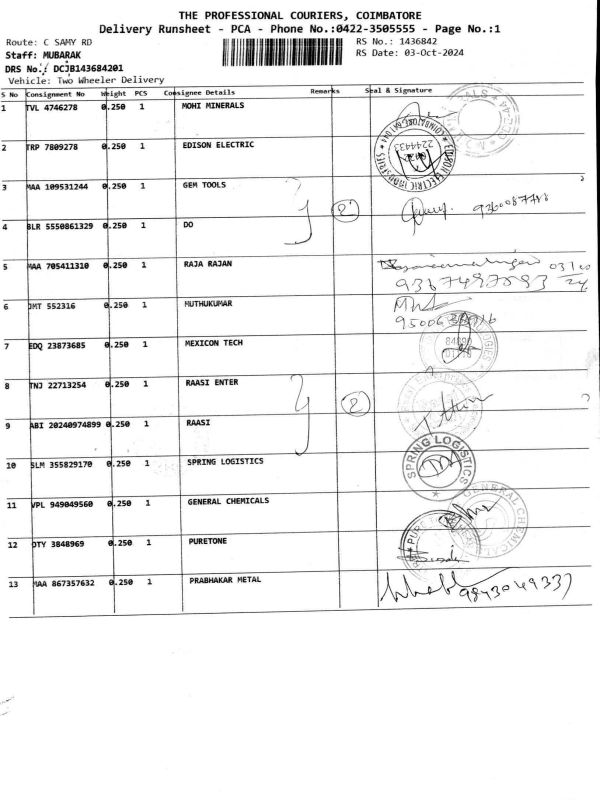 THE PROFESSIONAL COURIERS, COIMBATORE
Delivery Runsheet - PCA - Phone No.:0422-3505555 - Page No.:1
Route: C SAMY RD RS No.: 1436842
Staff: MUBARAK RS Date: 03-Oct-2024
DRS No.: DCJB143684201
Vehicle: Two Wheeler Delivery
S No Consignment No Weight PCS Consignee Details Remarks Seal & Signature
1 TVL 4746278 0.250 1 MOHI MINERALS
2 TRP 7809278 0.250 1 EDISON ELECTRIC
2244433
3 MAA 109531244 0.250 1 GEM TOOLS
2
4 BLR 5550861329 0.250 1 DO
5 MAA 705411310 0.250 1 RAJA RAJAN
9367497593
6 JMT 552316 0.250 1 MUTHUKUMAR
7 EDQ 23873685 1 MEXICON TECH
8 TNJ 22713254 0.250 1 RAASI ENTER
2
9 ABI 20240974899 0.250 1 RAASI
10 SLM 355829170 0.250 1 SPRING LOGISTICS
SPRING LOGISTICS
11 VPL 949049560 0.250 1 GENERAL CHEMICALS
GENERAL CHEMIC
12 DTY 3848969 0.250 1 PURETONE
PURE
13 MAA 867357632 0.250 1 PRABHAKAR METAL
9843049337